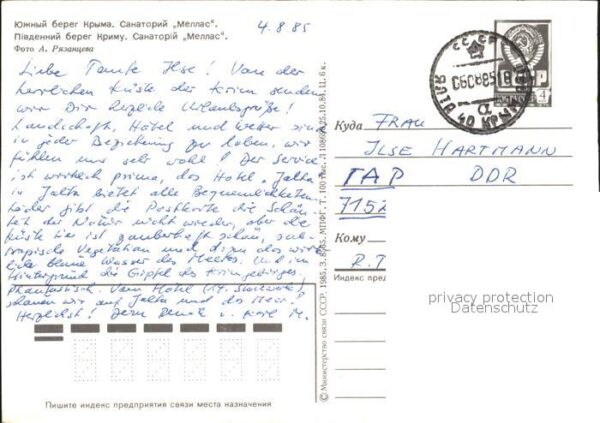 Южный берег Крыма. Санаторий „Меллас".
Південний берег Криму. Санаторій „Меллас".
Фото А. Рязанцева
4.8.85
Liebe Tante Ilse! Von der
herrlichen Küste der Krim senden
wir Dir herzliche Urlaubsgrüße!
Landschaft, Hotel und Wetter sind
in jeder Beziehung zu loben, wir
fühlen uns sehr wohl! Der Service
ist wirklich prima, das Hotel „Jalta"
in Jalta bietet alle Bequemlichkeiten.
Leider gibt die Postkarte die Schön-
heit der Natur nicht wieder, aber die
Küste hier ist zauberhaft schön, sub-
tropische Vegetation und dazu das
blaue Wasser des Meeres. Und im
Hintergrund die Gipfel des Krimgebirges.
Phantastisch. Vom Hotel
schauen wir auf Jalta und das Meer.
Herzlichst! Deine u. M.
Пишите индекс предприятия связи места назначения
© Министерство связи СССР. 1985. З. МПФГ. Т.
СССР
06088518
ЯЛТА 40 КРЫМ
α
4
Куда FRAU
ILSE HARTMANN
ГАР DDR
7152
Кому
R.T
Индекс пред
privacy protection
Datenschutz